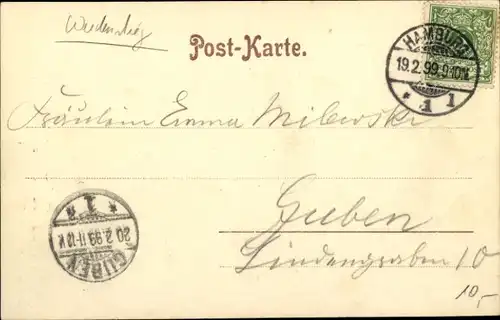 Post-Karte.
HAMBURG
19.2.99.9-10N.
* 1 1
Fräulein Emma Milewski
Guben
Lindengraben 10
* 1 *
20.2.99.11-12V.
GUBEN
10,-